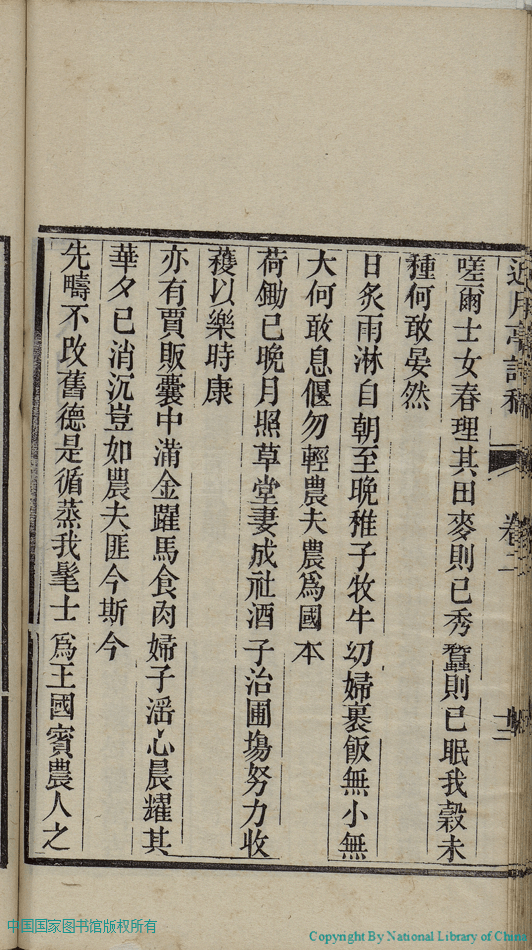 嗟爾士女春理其田麥則已秀蠶則已眠我穀未
種何敢晏然
日炙雨淋自朝至晩稚子牧牛幼婦裹飯無小無
大何敢息偃勿輕農夫農爲國本
荷鋤已晩月照草堂妻成社酒子治圃塲努力收
穫以樂時康
亦有賈販囊中滿金躍馬食肉婦子滛心晨耀其
華夕已消沉豈如農夫匪今斯今
先疇不改舊德是循蒸我髦士爲王國賓農人之
卷二
十二
中国国家图书馆版权所有
Copyright By National Library of China